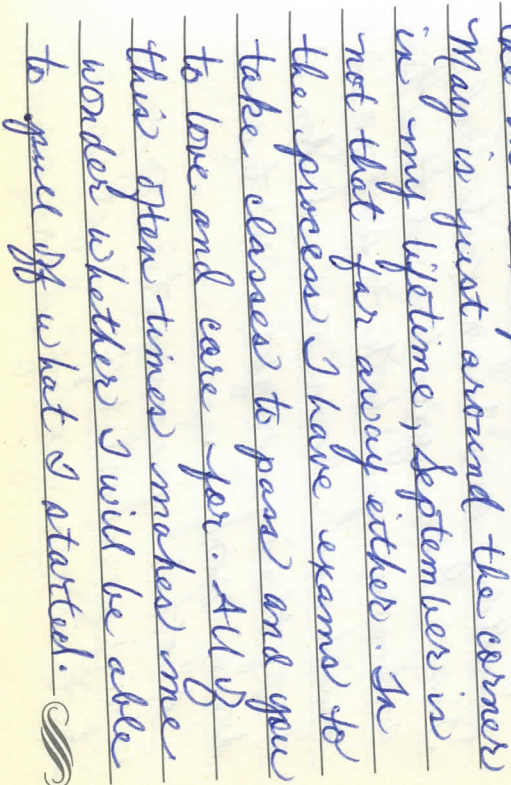 May is just around the corner
in my lifetime, September is
not that far away either. In
the process I have exams to
take, classes to pass and you
to love and care for. All of
this often times makes me
wonder whether I will be able
to pull off what I started.